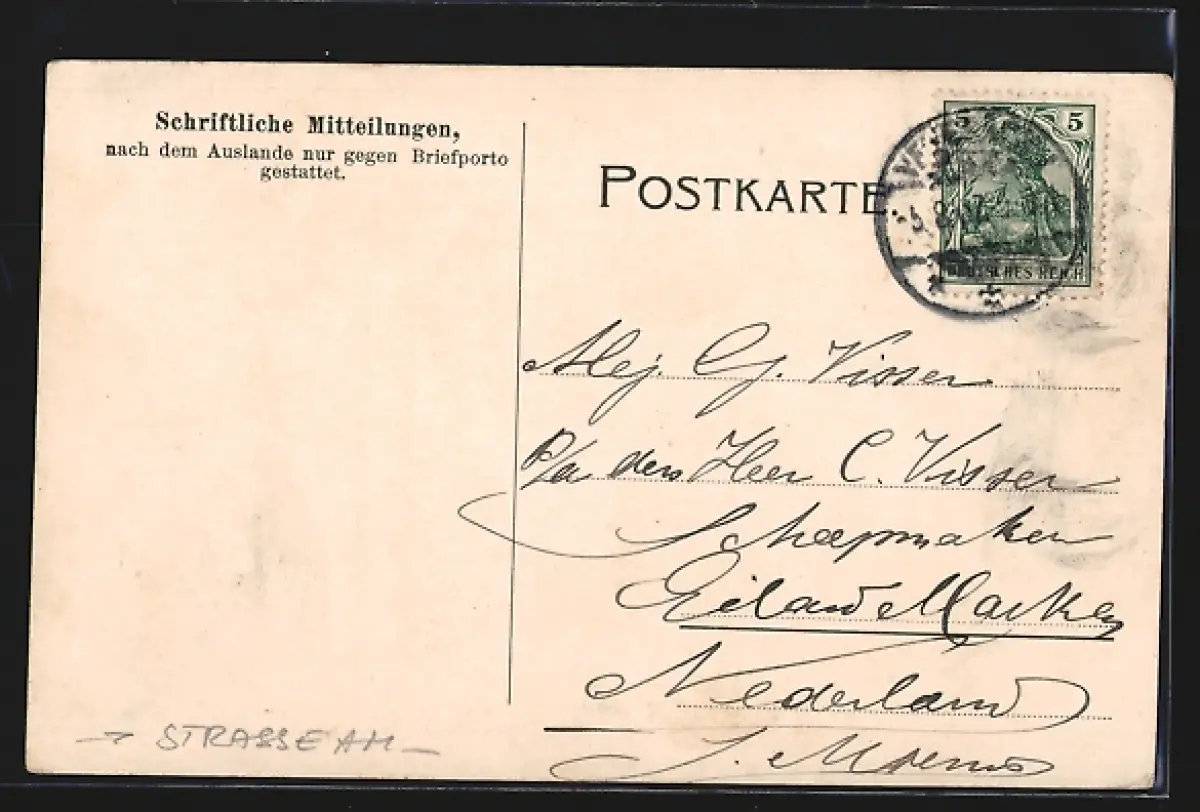 Schriftliche Mitteilungen,
nach dem Auslande nur gegen Briefporto
gestattet.
POSTKARTE
5 5
DEUTSCHES REICH
Mej. G. Visser
P/a den Heer C. Visser
Scheepmaker
Eiland Marken
Nederland
STRASSE AM